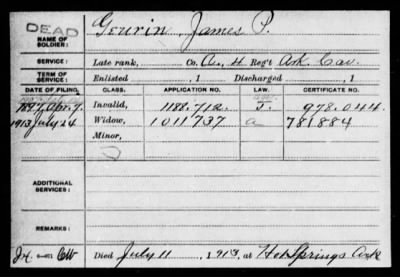 DEAD
NAME OF SOLDIER: Gourin, James P.
SERVICE: Late rank, Co. A, 4 Reg't Ark Cav.
TERM OF SERVICE: Enlisted , 1 Discharged , 1
DATE OF FILING. CLASS. APPLICATION NO. LAW. CERTIFICATE NO.
1897 Apr. 7. Invalid, 1188.712. J. 978.044
1913 July 24 Widow, 1011737 a 781884
Minor,
ADDITIONAL SERVICES:
REMARKS:
Died July 11 , 1913, at Hot Springs Ark